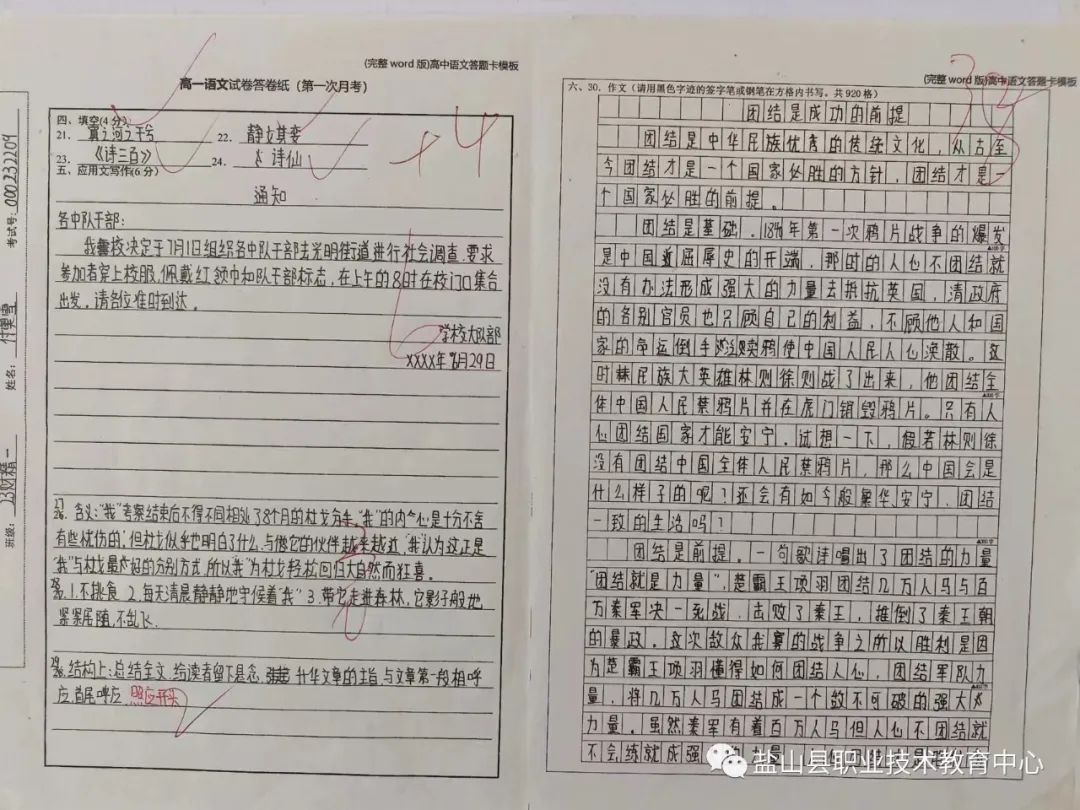 (完整 word 版)高中语文答题卡模板
高一语文试卷答卷纸（第一次月考）
四、填空(4 分)
21. 冀之河之干兮 22. 静女其娈
23. 《诗三百》 24. 诗仙
+4
五、应用文写作(6 分)
通知
各中队干部：
我校决定于7月1日组织各中队干部去光明街道进行社会调查，要求
参加者穿上校服，佩戴红领巾和队干部标志，在上午的8时在校门口集合
出发，请各位准时到达。
学校大队部
XXXX年6月29日
27
含义："我"考察结束后不得不同相处了8个月的杜戈分手，"我"的内心是十分不舍
有些忧伤的，但杜戈似乎也明白了什么，与他它的伙伴越来越近，"我"认为这正是
"我"与杜戈最好的分别方式，所以"我"为杜戈轻松回归大自然而狂喜。
28
1.不挑食 2.每天清晨静静地守候着"我" 3.带它走进森林，它影子般地
紧紧尾随，不乱飞.
29
结构上：总结全文，给读者留下悬念，升华文章的主旨，与文章第一段相呼
应，首尾呼应，照应开头
考试号：000232209
姓名：付果雪
班级：23财精一
(完整 word 版)高中语文答题卡模板
六、30．作文（请用黑色字迹的签字笔或钢笔在方格内书写。共 920 格）
团结是成功的前提
团结是中华民族优秀的传统文化，从古至
今团结才是一个国家必胜的方针，团结才是一
个国家必胜的前提。
团结是基础。1840年第一次鸦片战争的爆发
是中国近屈辱史的开端，那时的人心不团结就
没有办法形成强大的力量去抵抗英国，清政府
的各别官员也只顾自己的利益，不顾他人和国
家的命运倒手贩卖鸦使中国人民人心涣散。这
时民族大英雄林则徐则战了出来，他团结全
体中国人民禁鸦片并在虎门销毁鸦片。只有人
心团结国家才能安宁。试想一下，假若林则徐
没有团结中国全体人民禁鸦片，那么中国会是
什么样子的呢？还会有如今般繁华安宁、团结
一致的生活吗？
团结是前提。一句歌诗唱出了团结的力量
"团结就是力量"，楚霸王项羽团结几万人马与百
万秦军决一死战，击败了秦王，推倒了秦王朝
的暴政。这次敌众我寡的战争之所以胜利是因
为楚霸王项羽懂得如何团结人心，团结军队力
量，将几万人马团结成一个敌不可破的强大
力量。虽然秦军有着百万人马但人心不团结就
不会练就成强
盐山县职业技术教育中心